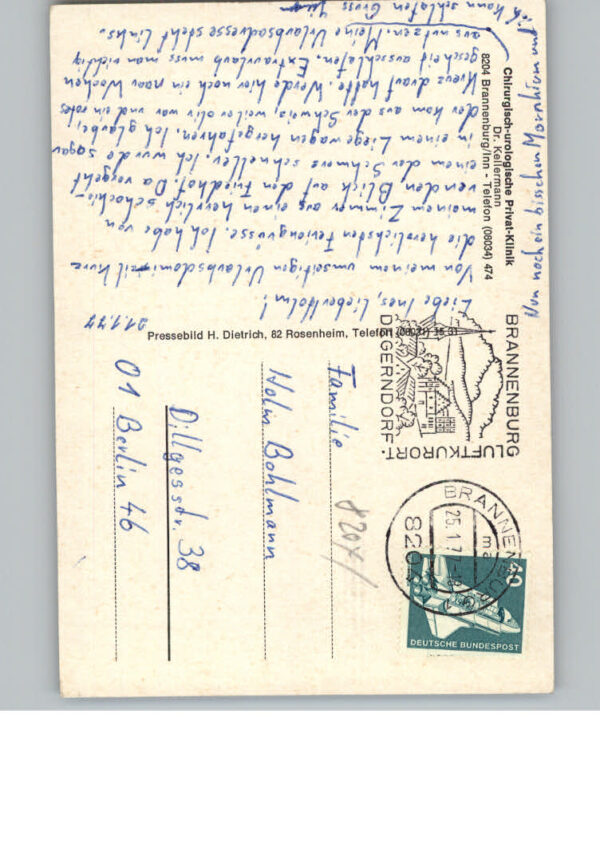 Chirurgisch-urologische Privat-Klinik
Dr. Kellermann
8204 Brannenburg/Inn - Telefon (08034) 474
21.1.77
Liebe Ines, lieber Holm!
Von meinem umseitigen Urlaubsdomizil kurz
die herrlichsten Feriengrüsse. Ich habe von
meinem Zimmer aus einen herrlich schockie-
renden Blick auf den Friedhof. Da vergeht
einem der Schmerz schneller. Ich wurde sogar
in einem Liegewagen hergefahren. Ich glaube,
der kam aus der Schweiz, weil er oliv war und ein rotes
Kreuz drauf hatte. Werde hier noch ein paar Wochen
gescheit ausschlafen. Extraurlaub muss man richtig
ausnutzen. Meine Urlaubsadresse steht links.
Nun noch ein bisschen Morphium und
ich kann schlafen Gruss
Pressebild H. Dietrich, 82 Rosenheim, Telefon (08031) 15 31
BRANNENBURG
DEGERNDORF
LUFTKURORT
BRANNENBURG
25.1.77-18
8204
60
DEUTSCHE BUNDESPOST
8204/
Familie
Holm Bohlmann
Dillgesstr. 38
01 Berlin 46